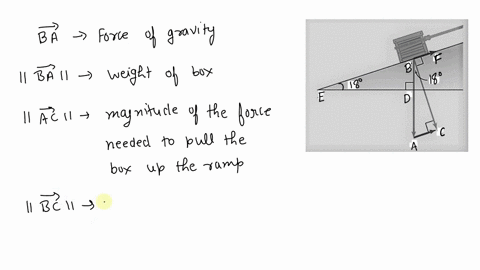 BA → Force of gravity
|| BA || → weight of box
|| AC || → magnitude of the force
needed to pull the
box up the ramp
|| BC || →
B F
18°
E 18°
D
C
A